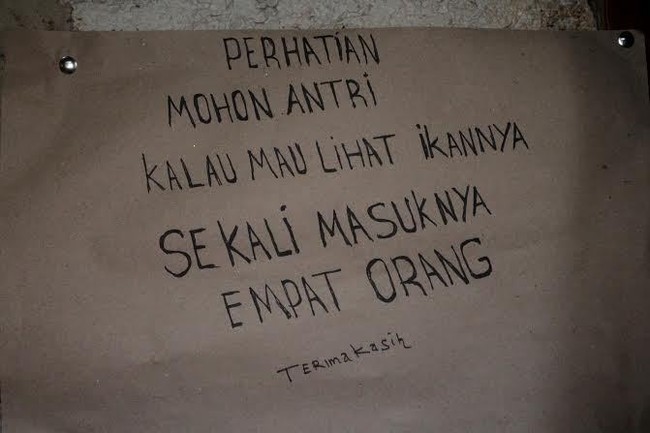 PERHATiAN
MOHON ANTRi
KALAU MAU LiHAT iKANNYA
SEKALi MASUKNYA
EMPAT ORANG
TERimaKasih